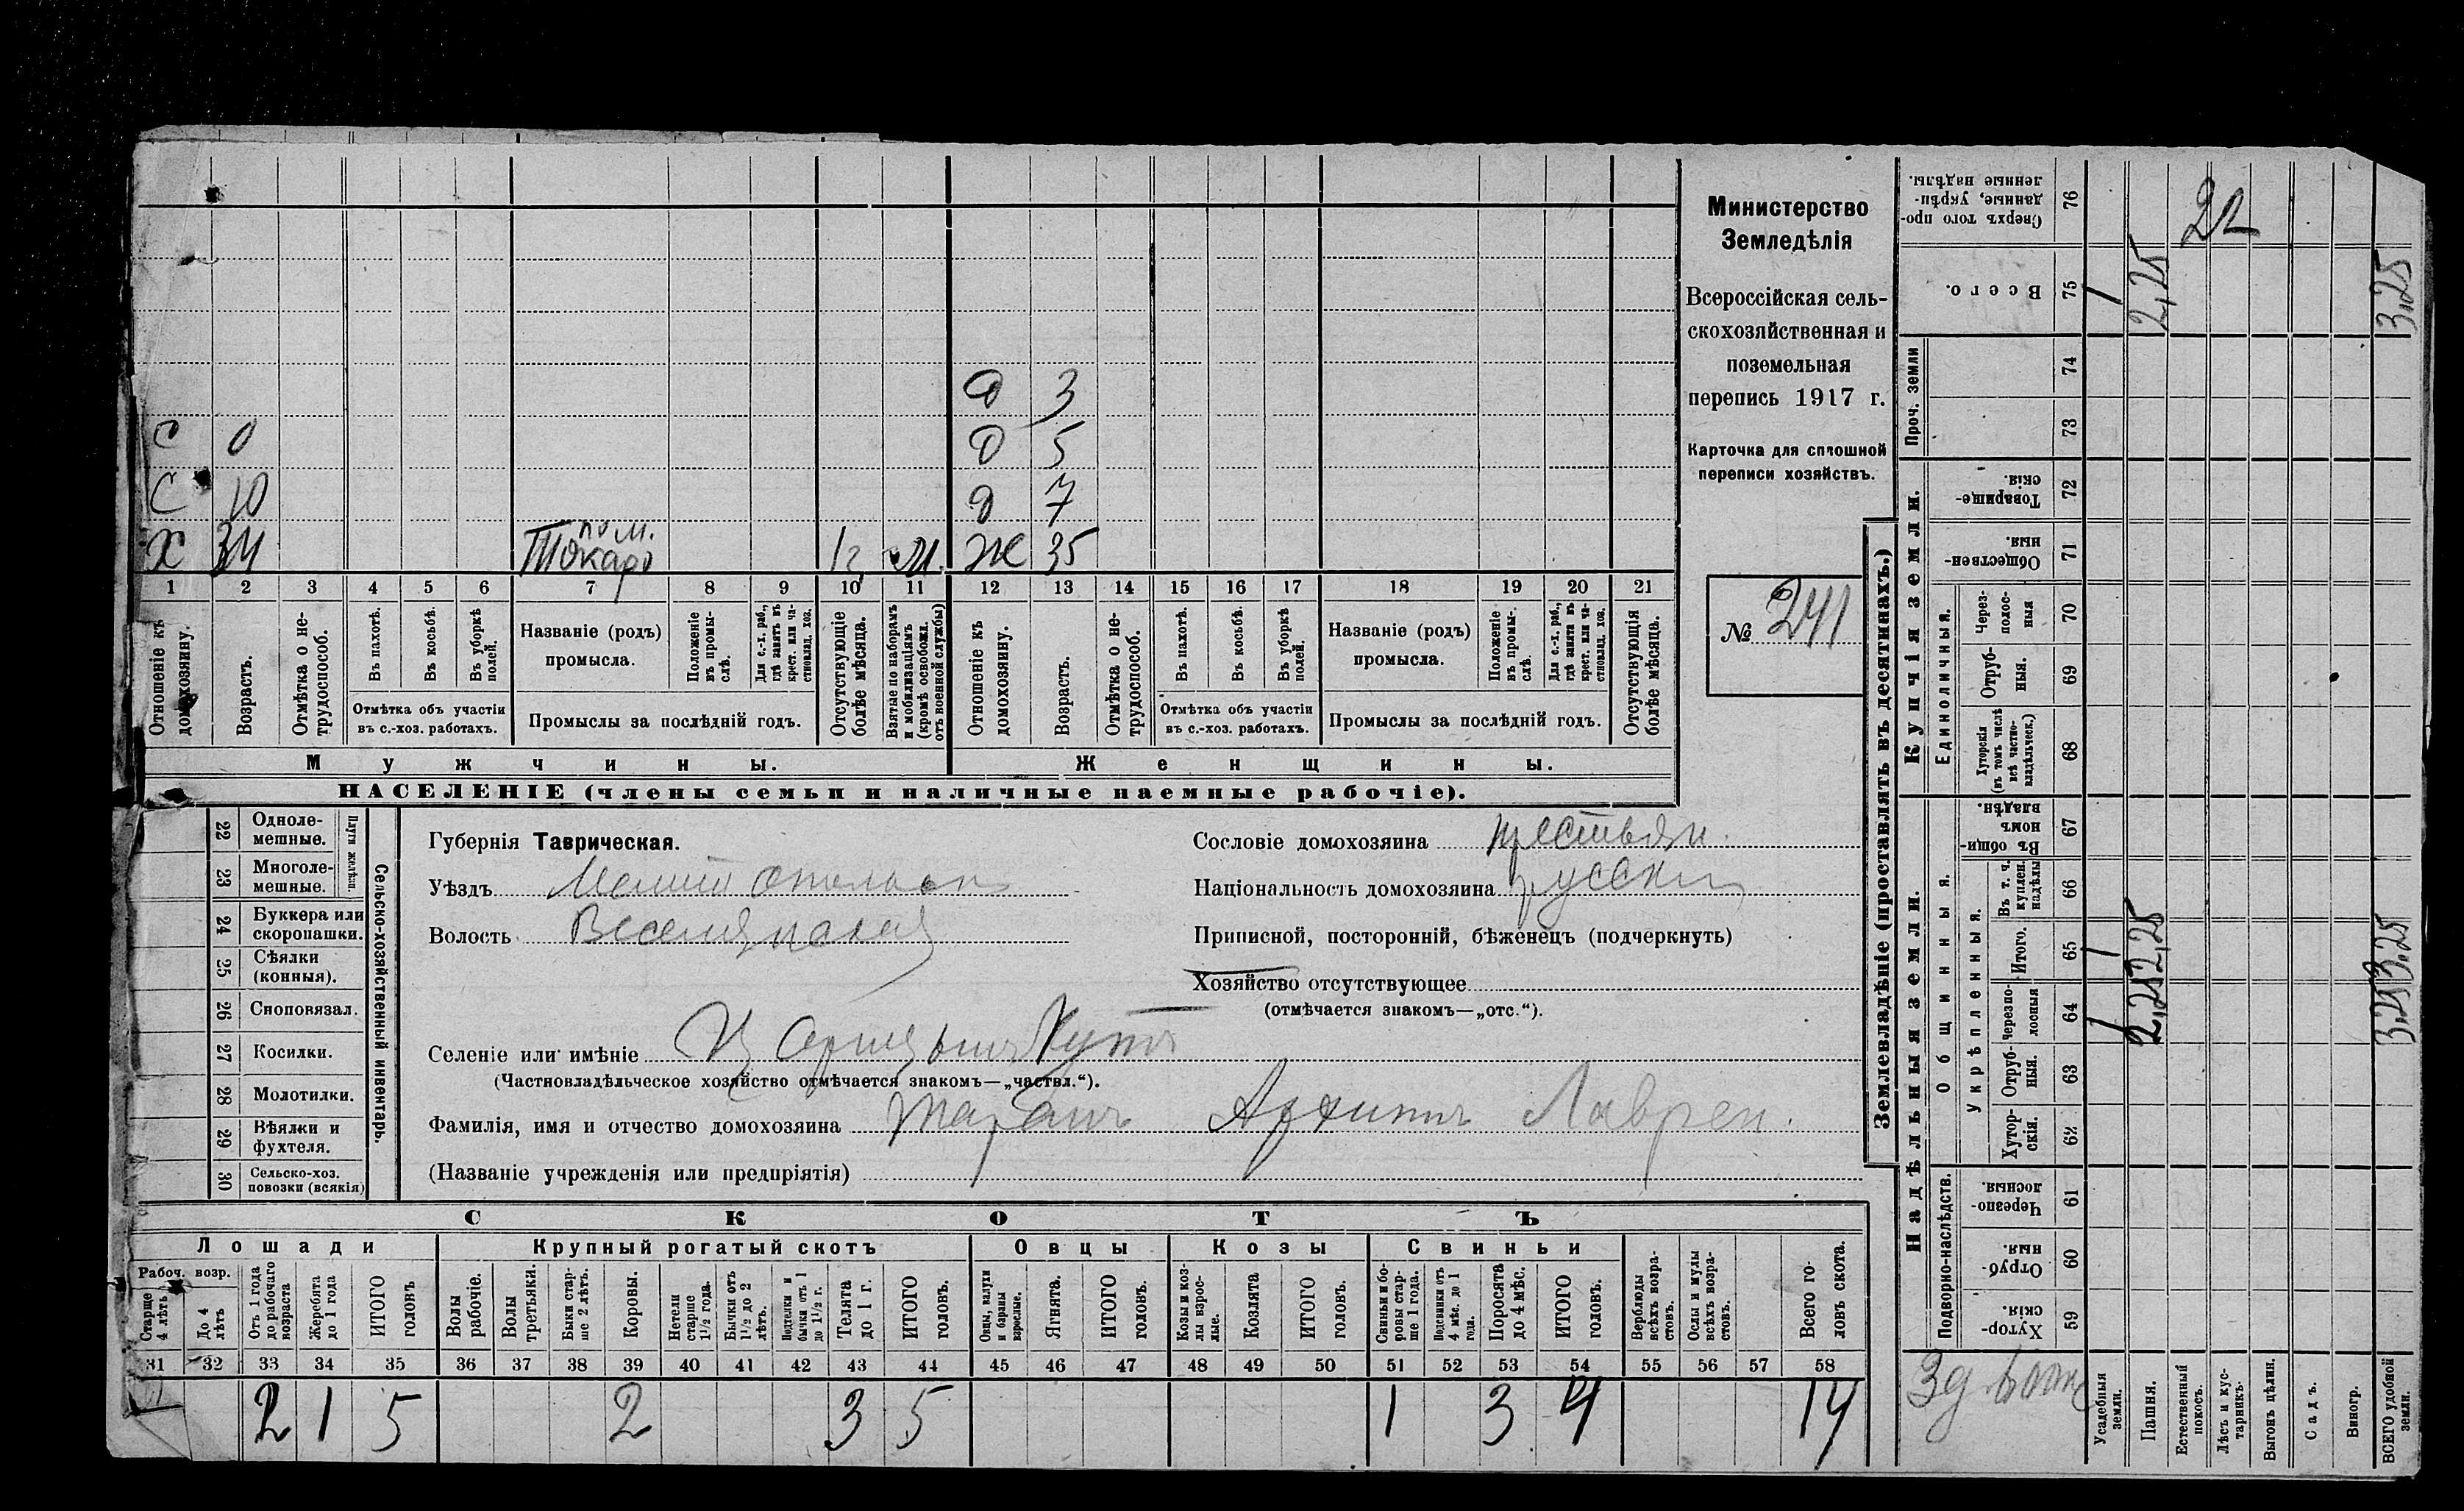 Министерство
Земледѣлія
Всероссійская сель-
скохозяйственная и
поземельная
перепись 1917 г.
Карточка для сплошной
переписи хозяйствъ.
№ 241
Д 3
С 0 Д 5
С 10 Д 7
пом.
Х 34 Токаро 12 М. Ж 35
1 2 3 4 5 6 7 8 9 10 11 12 13 14 15 16 17 18 19 20 21
Отношеніе къ домохозяину.
Возрастъ.
Отмѣтка о не-трудоспособ.
Въ пахотѣ.
Въ косьбѣ.
Въ уборкѣ полей.
Отмѣтка объ участіи
въ с.-хоз. работахъ.
Названіе (родъ)
промысла.
Положеніе въ промы-слѣ.
Для с.-х. раб., гдѣ занятъ въ крест. или ча-стновлад. хоз.
Промыслы за послѣдній годъ.
Отсутствующіе болѣе мѣсяца.
Взятые по наборамъ и мобилизаціямъ (кромѣ освобожд. отъ военной службы)
Отношеніе къ домохозяину.
Возрастъ.
Отмѣтка о не-трудоспособ.
Въ пахотѣ.
Въ косьбѣ.
Въ уборкѣ полей.
Отмѣтка объ участіи
въ с.-хоз. работахъ.
Названіе (родъ)
промысла.
Положеніе въ промы-слѣ.
Для с.-х. раб., гдѣ занята въ крест. или ча-стновлад. хоз.
Промыслы за послѣдній годъ.
Отсутствующія болѣе мѣсяца.
Мужчины.
Женщины.
НАСЕЛЕНІЕ (члены семьи и наличные наемные рабочіе).
22 Одноле-мешные.
23 Многоле-мешные.
Плуги желѣзн.
24 Буккера или скоропашки.
25 Сѣялки (конныя).
26 Сноповязал.
27 Косилки.
28 Молотилки.
29 Вѣялки и фухтеля.
30 Сельско-хоз. повозки (всякія)
Сельско-хозяйственный инвентарь.
Губернія Таврическая.
Уѣздъ Мелитопольск
Волость Веселянская
Сословіе домохозяина крестьян.
Національность домохозяина русски
Приписной, посторонній, бѣженецъ (подчеркнуть)
Хозяйство отсутствующее
(отмѣчается знакомъ—„отс.“).
Селеніе или имѣніе Царицынъ Кутъ
(Частновладѣльческое хозяйство отмѣчается знакомъ—„частвл.“).
Фамилія, имя и отчество домохозяина Таранъ Архипъ Паврен.
(Названіе учрежденія или предпріятія)
СКОТЪ
Лошади
Крупный рогатый скотъ
Овцы
Козы
Свиньи
Рабоч. возр.
Старше 4 лѣтъ
До 4 лѣтъ
Отъ 1 года до рабочаго возраста
Жеребята до 1 года
ИТОГО головъ
Волы рабочіе.
Волы третьяки.
Быки стар-ше 2 лѣтъ.
Коровы.
Нетели старше 1½ года.
Бычки отъ 1½ до 2 лѣтъ.
Подтелки и бычки отъ 1 до 1½ г.
Телята до 1 г.
ИТОГО головъ.
Овцы, валухи и бараны взрослые.
Ягнята.
ИТОГО головъ.
Козы и коз-лы взрос-лые.
Козлята
ИТОГО головъ.
Свиньи и бо-ровы стар-ше 1 года.
Подсвинки отъ 4 мѣс. до 1 года.
Поросята до 4 мѣс.
ИТОГО головъ.
Верблюды всѣхъ возра-стовъ.
Ослы и мулы всѣхъ возра-стовъ.
Всего го-ловъ скота.
31 32 33 34 35 36 37 38 39 40 41 42 43 44 45 46 47 48 49 50 51 52 53 54 55 56 57 58
2 1 5 2 3 5 1 3 4 14
Землевладѣніе (проставлять въ десятинахъ.)
Надѣльныя земли.
Купчія земли.
Проч. земли
Подворно-наслѣдств.
Общинныя.
Укрѣпленныя.
Единоличныя.
59 Хутор-скія
60 Отруб-ныя.
61 Черезпо-лосныя.
62 Хутор-скія.
63 Отруб-ныя.
64 Черезпо-лосныя
65 Итого.
66 Въ т. ч. куплен. надѣлы
67 Въ общи-номъ владѣн.
68 Хуторскія (въ томъ числѣ всѣ частно-владѣльческ.)
69 Отруб-ныя.
70 Через-полос-ныя
71 Обществен-ныя
72 Товарище-скія.
73
74
75 Всего.
76 Сверхъ того про-данные, укрѣп-ленные надѣлы.
Усадебныя земли.
1 1 1
Пашня.
2,25 2,25 2,25
Естественный покосъ.
Лѣсъ и кус-тарникъ.
Выгонъ цѣлин.
Садъ.
Виногр.
ВСЕГО удобной земли.
3,25 3,25 3,25